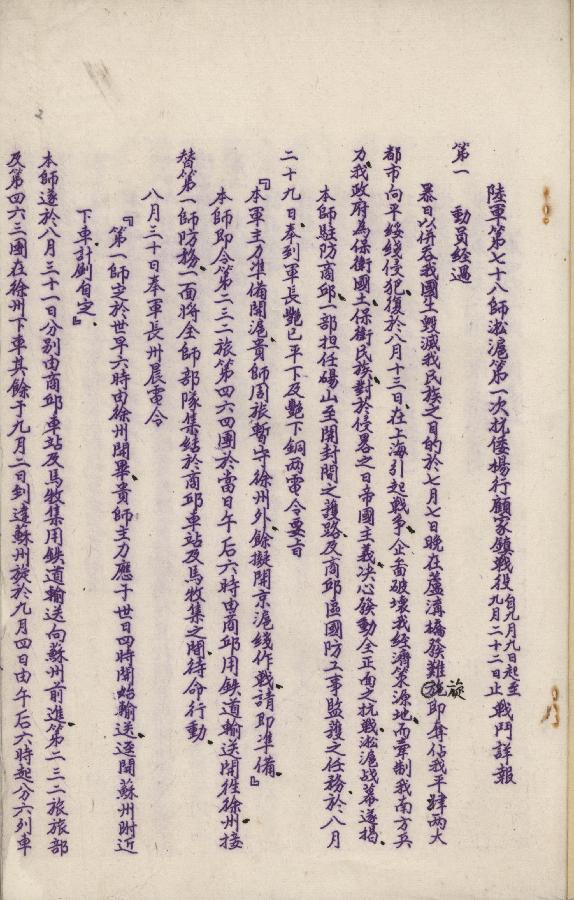 陸軍第七十八師淞滬第一次抗倭楊行顧家鎮戰役自九月九日起至九月二十二日止戰鬥詳報
第一　動員經過
暴日以併吞我國土毀滅我民族之目的於七月七日晚在蘆溝橋發難旋即奪佔我平肆兩大
都市向平綏綫侵犯復於八月十三日在上海引起戰爭企畵破壞我經濟策源地而牽制我南方兵
力我政府為保衛國土保衛民族對於侵畧之日帝國主義决心發動全正面之抗戰淞滬战幕遂揭
本師駐防商邱一部担任碭山至開封間之護路及商邱區國防工事監護之任務於八月
二十九日奉到軍長艷已平下及艷下銅兩電令要旨
『本軍主力準備開滬貴師周旅暫守徐州外餘擬開京滬綫作戰請即準備』
本師即令第二三二旅第四六四團於當日午后六時由商邱用鉄道輸送開徃徐州接
替第一師防務一面將全師部隊集結於商邱車站及馬牧集之間待命行動
八月三十日奉軍長卅晨電令
『第一師定於世早六時由徐州開畢貴師主力應于世日四時開始輸送逕開蘇州附近
下車計劃自定』
本師遂於八月三十一日分別由商邱車站及馬牧集用鉄道輸送向蘇州前進第二三二旅旅部
及第四六三團在徐州下車其餘于九月二日到達蘇州旋於九月四日由午后六時起分六列車